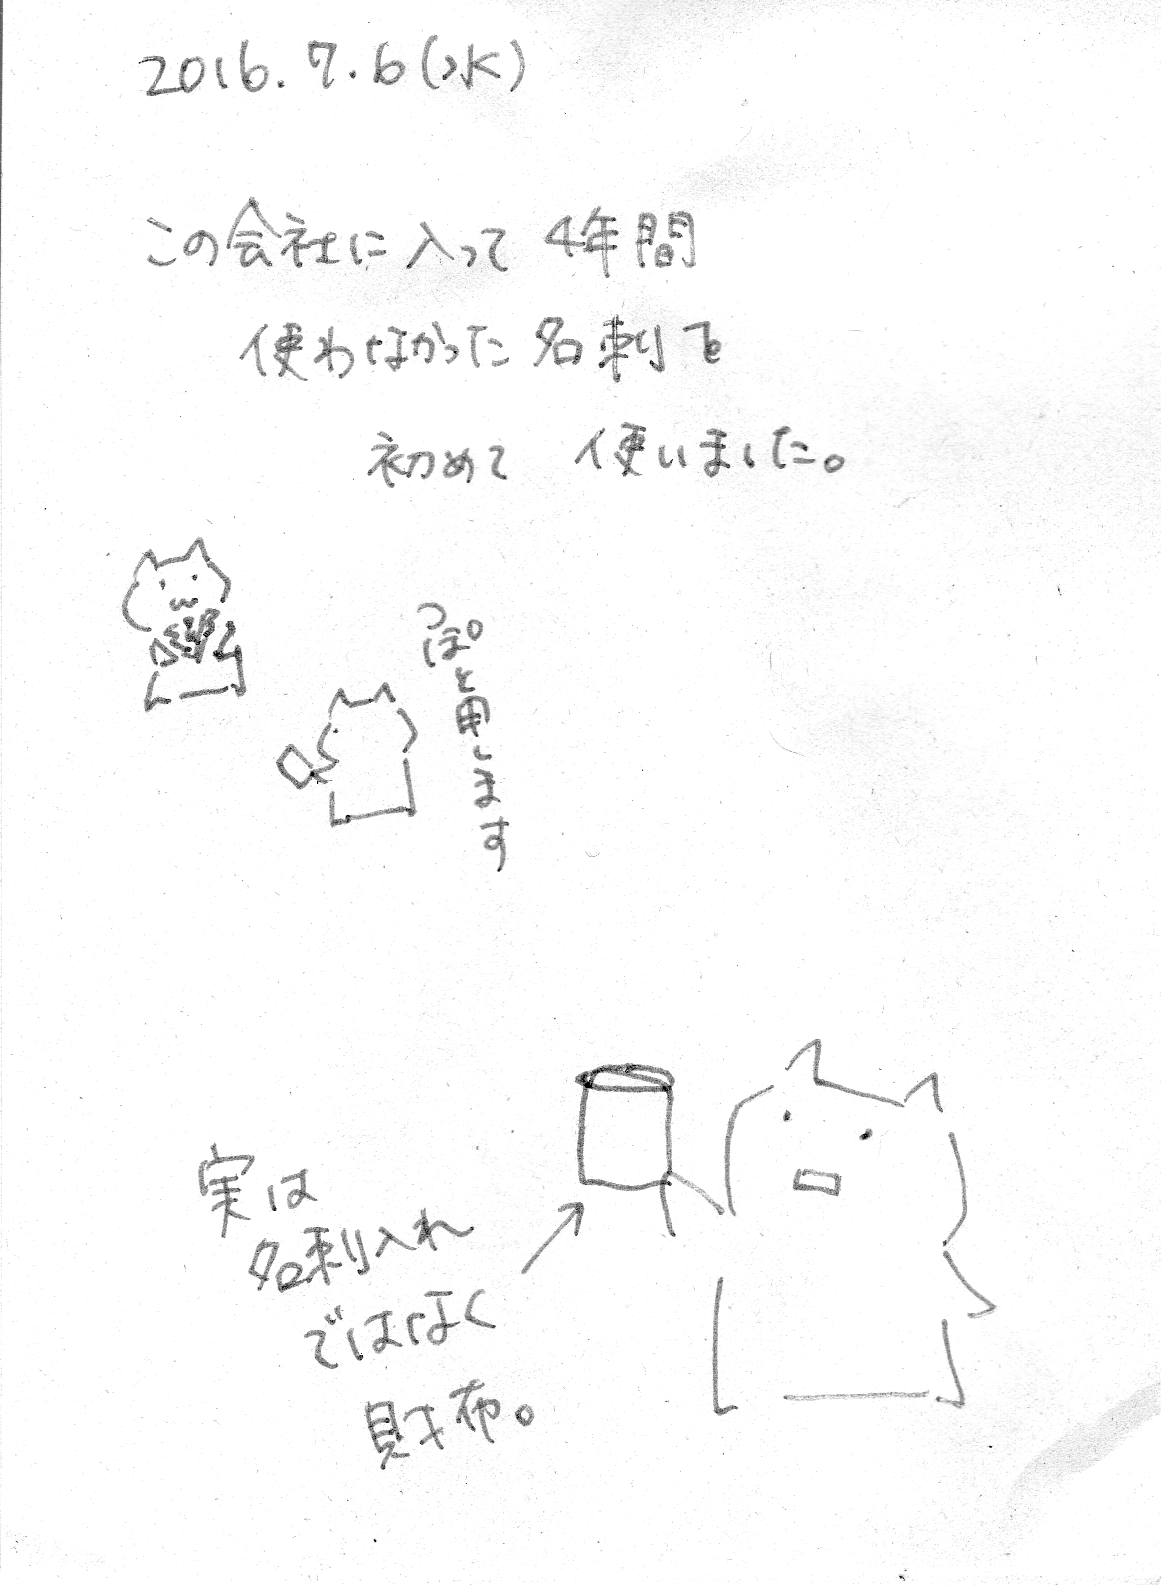 2016.7.6(水)
この会社に入って 4年間
使わなかった名刺を
初めて 使いました。
っぽと申します
実は
名刺入れ
ではなく
財布。